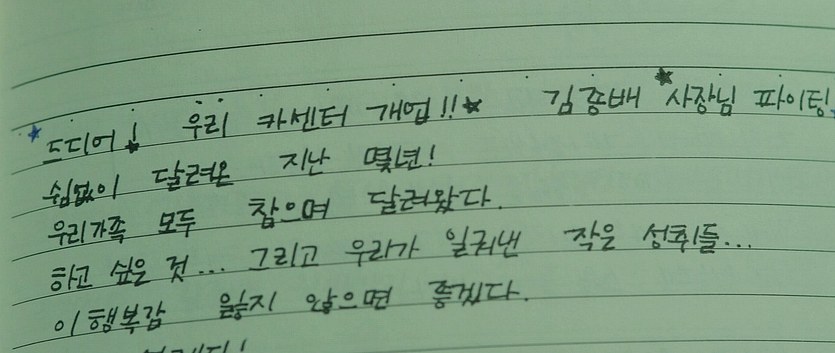 ★드디어! 우리 카센터 개업!!★ 김종배 ★사장님 파이팅
쉼없이 달려온 지난 몇년!
우리가족 모두 참으며 달려왔다.
하고 싶은 것... 그리고 우리가 일궈낸 작은 성취들...
이 행복감 잃지 않으면 좋겠다.